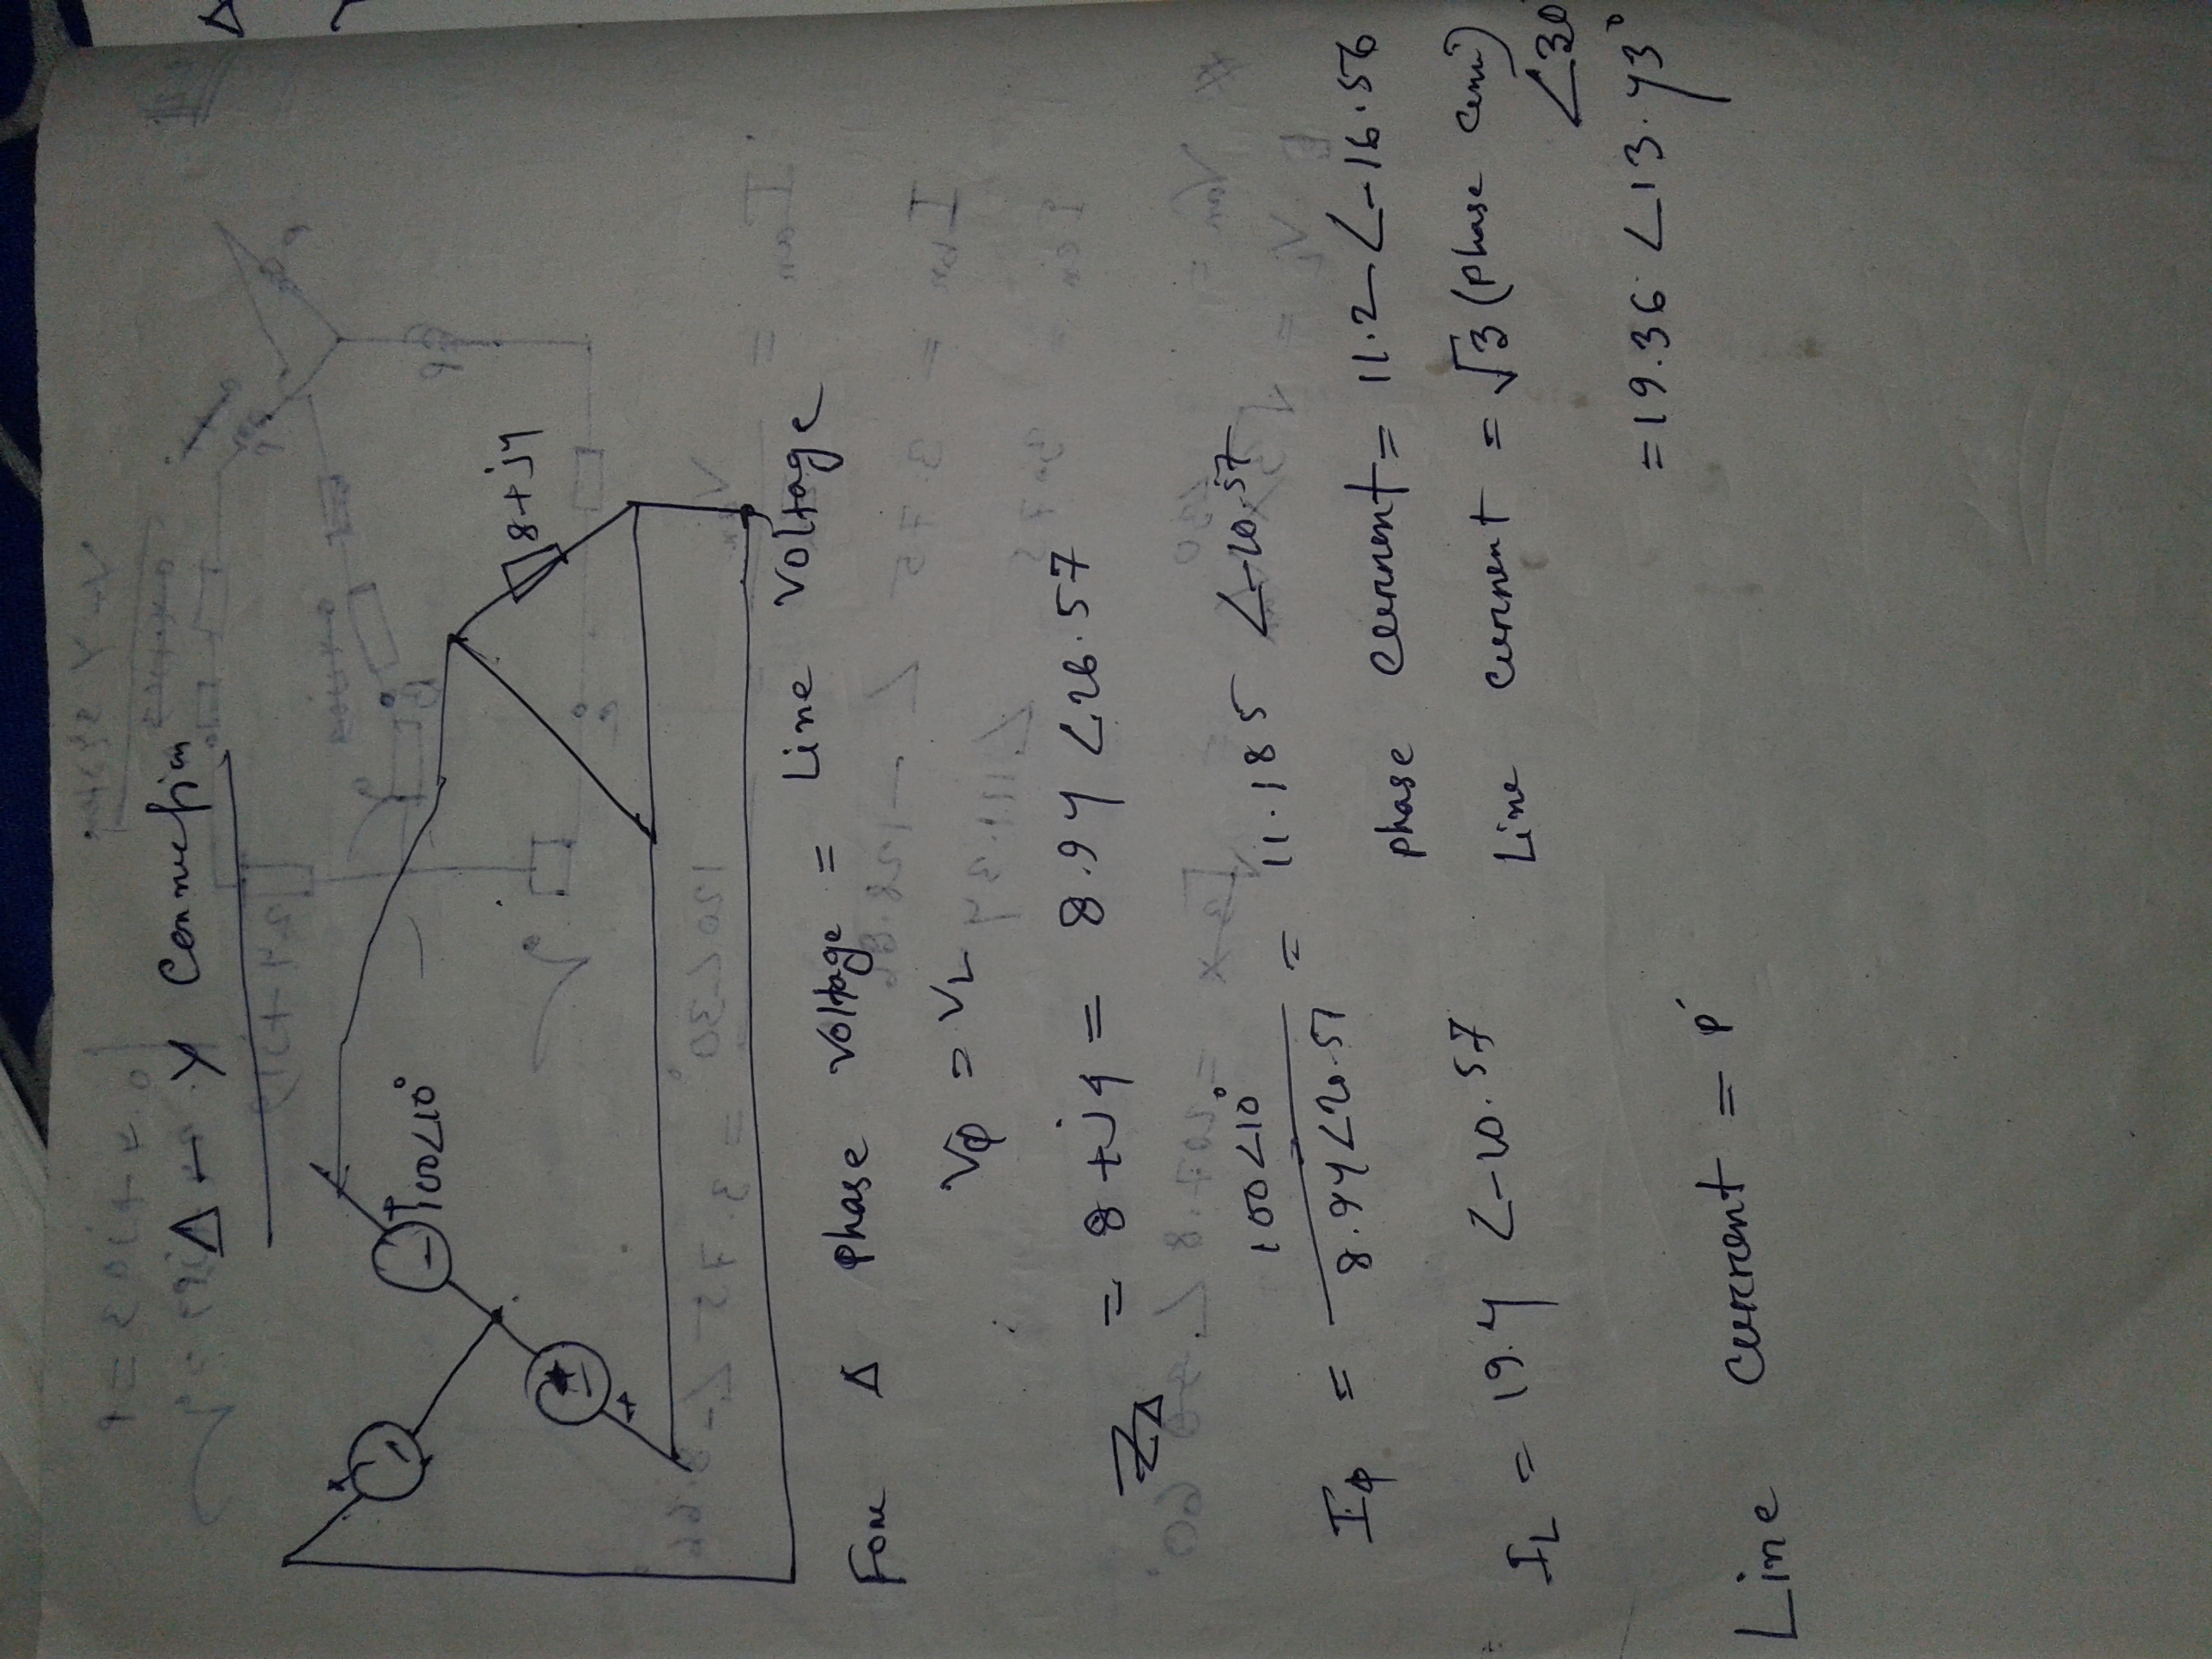 Δ - Y Connection
+ -
- + 100∠10°
+ -
+
8+j4
Fore Δ phase voltage = Line voltage
Vφ = VL
ZΔ = 8+j4 = 8.94 ∠26.57
Iφ = 100∠10° / 8.94∠26.57 = 11.185 ∠-10.57
phase current = 11.2 ∠-16.56
IL = 19.4 ∠-10.57
Line current = √3 (phase curr)
∠30
= 19.36 ∠13.43°
Line current = P